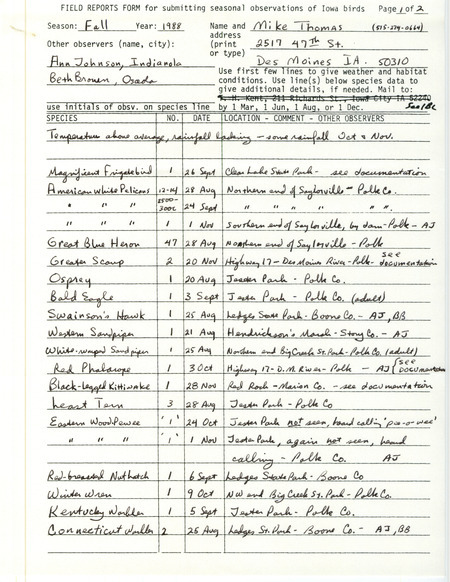 FIELD REPORTS FORM for submitting seasonal observations of Iowa birds Page 1 of 2
Season: Fall Year: 1988 Name and address (print or type) Mike Thomas (515-279-0664)
2517 47th St.
Des Moines IA. 50310
Other observers (name, city):
Ann Johnson, Indianola
Beth Brown, Osceola
Use first few lines to give weather and habitat
conditions. Use line(s) below species data to
give additional details, if needed. Mail to:
T. H. Kent, 211 Richards St., Iowa City IA 52240
use initials of obsv. on species line by 1 Mar, 1 Jun, 1 Aug, or 1 Dec.
SPECIES NO. DATE LOCATION - COMMENT - OTHER OBSERVERS
Temperature above average, rainfall lacking - some rainfall Oct & Nov.
Magnificent Frigatebird 1 26 Sept Clear Lake State Park - see documentation
American White Pelicans 12-14 28 Aug Northern end of Saylorville - Polk Co.
" " 2500-3000 24 Sept " " " " " ".
" " 1 1 Nov Southern end of Saylorville, by dam - Polk - AJ
Great Blue Heron 47 28 Aug Northern end of Saylorville - Polk
Greater Scaup 2 20 Nov Highway 17 - Des Moines River - Polk - see documentation
Osprey 1 20 Aug Jester Park - Polk Co.
Bald Eagle 1 3 Sept Jester Park - Polk Co. (adult)
Swainson's Hawk 1 25 Aug Ledges State Park - Boone Co. - AJ, BB
Western Sandpiper 1 21 Aug Hendrickson's Marsh - Story Co. - AJ
White-rumped Sandpiper 1 25 Aug Northern end Big Creek St. Park - Polk Co. (adult)
Red Phalarope 1 3 Oct Highway 17 - D.M. River - Polk - AJ (see documentation
Black-legged Kittiwake 1 28 Nov Red Rock - Marion Co. - see documentation
Least Tern 3 28 Aug Jester Park - Polk Co
Eastern Wood Pewee '1' 24 Oct Jester Park not seen, heard callin' 'pee-o-wee'
" " " '1' 1 Nov Jester Park, again not seen, heard
calling - Polk Co. AJ
Red-breasted Nuthatch 1 6 Sept Ledges State Park - Boone Co
Winter Wren 1 9 Oct NW end Big Creek St. Park - Polk Co.
Kentucky Warbler 1 5 Sept Jester Park - Polk Co.
Connecticut Warbler 2 25 Aug Ledges St. Park - Boone Co. - AJ, BB